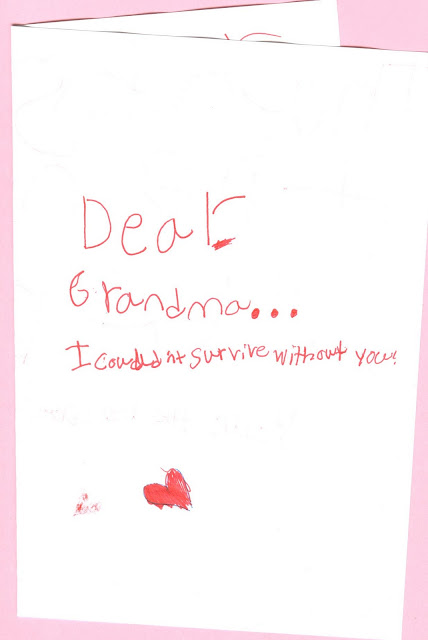 Dear
Grandma...
I couldn't survive without you!